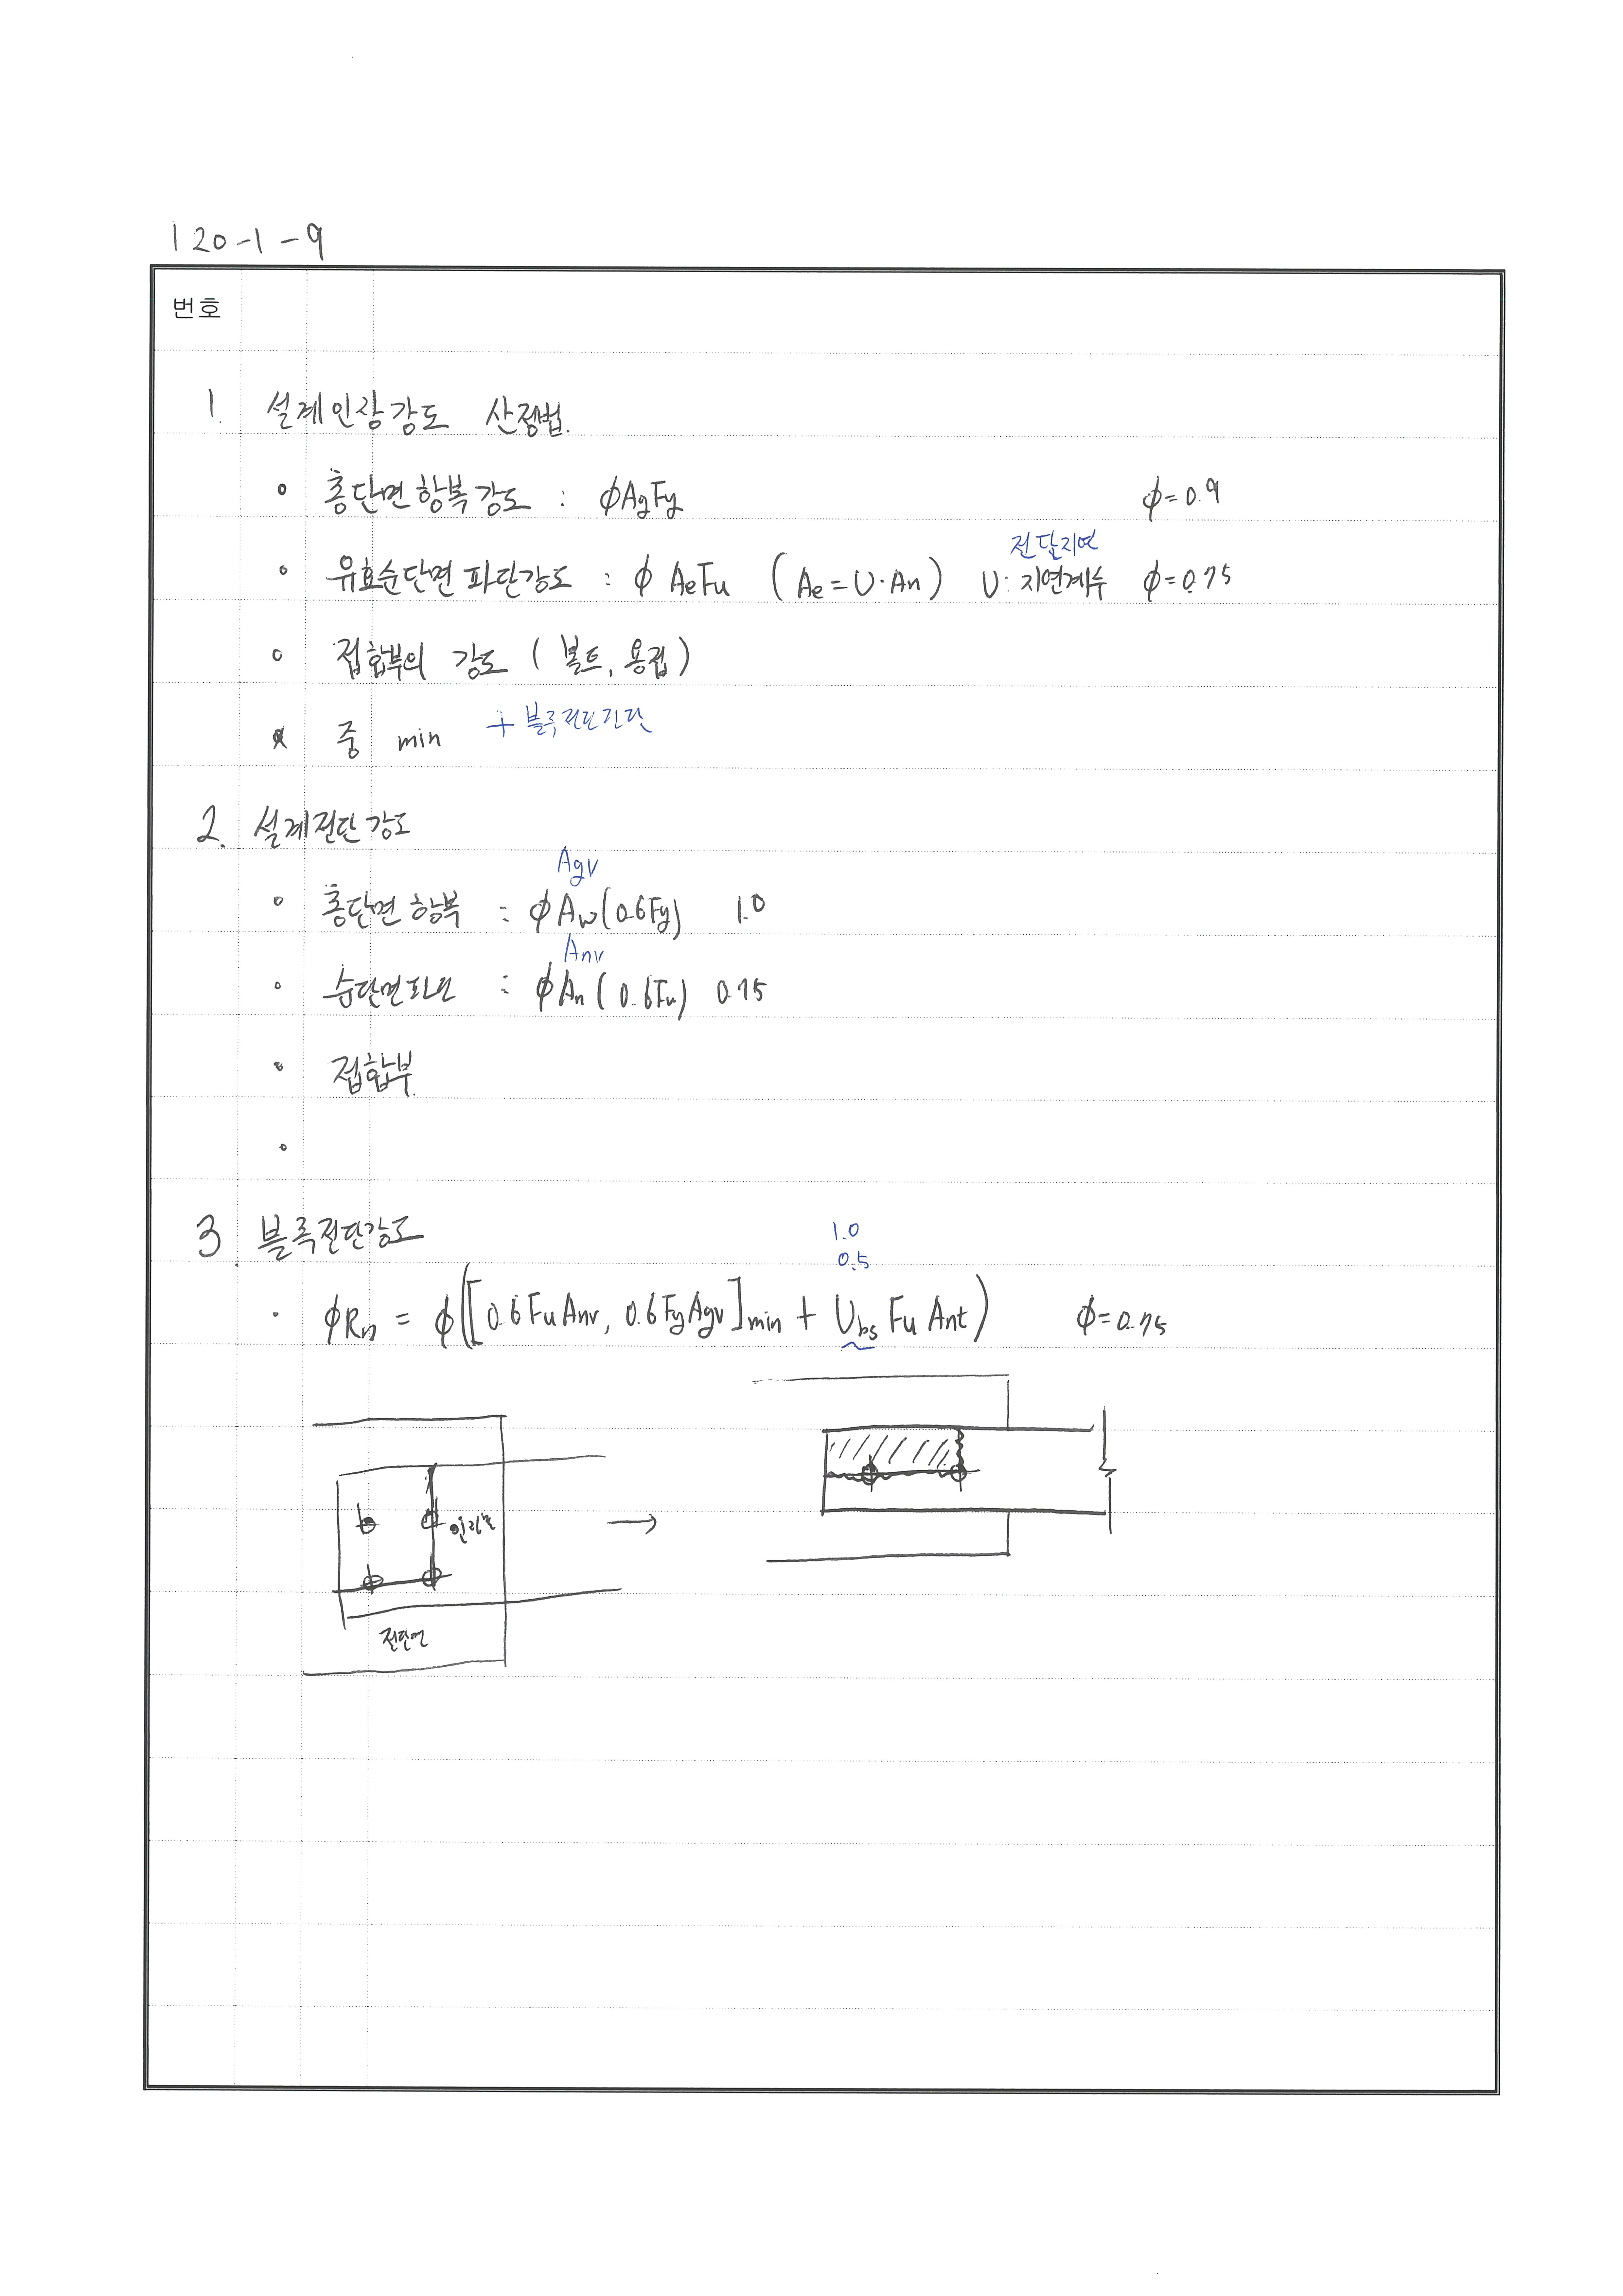 120-1-9
번호
1. 설계인장강도 산정법.
총단면 항복 강도 : ϕAgFy ϕ=0.9
전단지연
유효순단면 파단강도 : ϕ AeFu (Ae=U·An) U: 지연계수 ϕ=0.75
접합부의 강도 (볼트, 용접)
중 min + 블록전단강도
2. 설계전단강도
Agv
총단면 항복 : ϕAw(0.6Fy) 1.0
Anv
순단면파단 : ϕAn(0.6Fu) 0.75
접합부.
3. 블록전단강도
1.0
0.5
· ϕRn = ϕ([0.6FuAnv, 0.6FyAgv]min + Ubs Fu Ant) ϕ=0.75
전단면